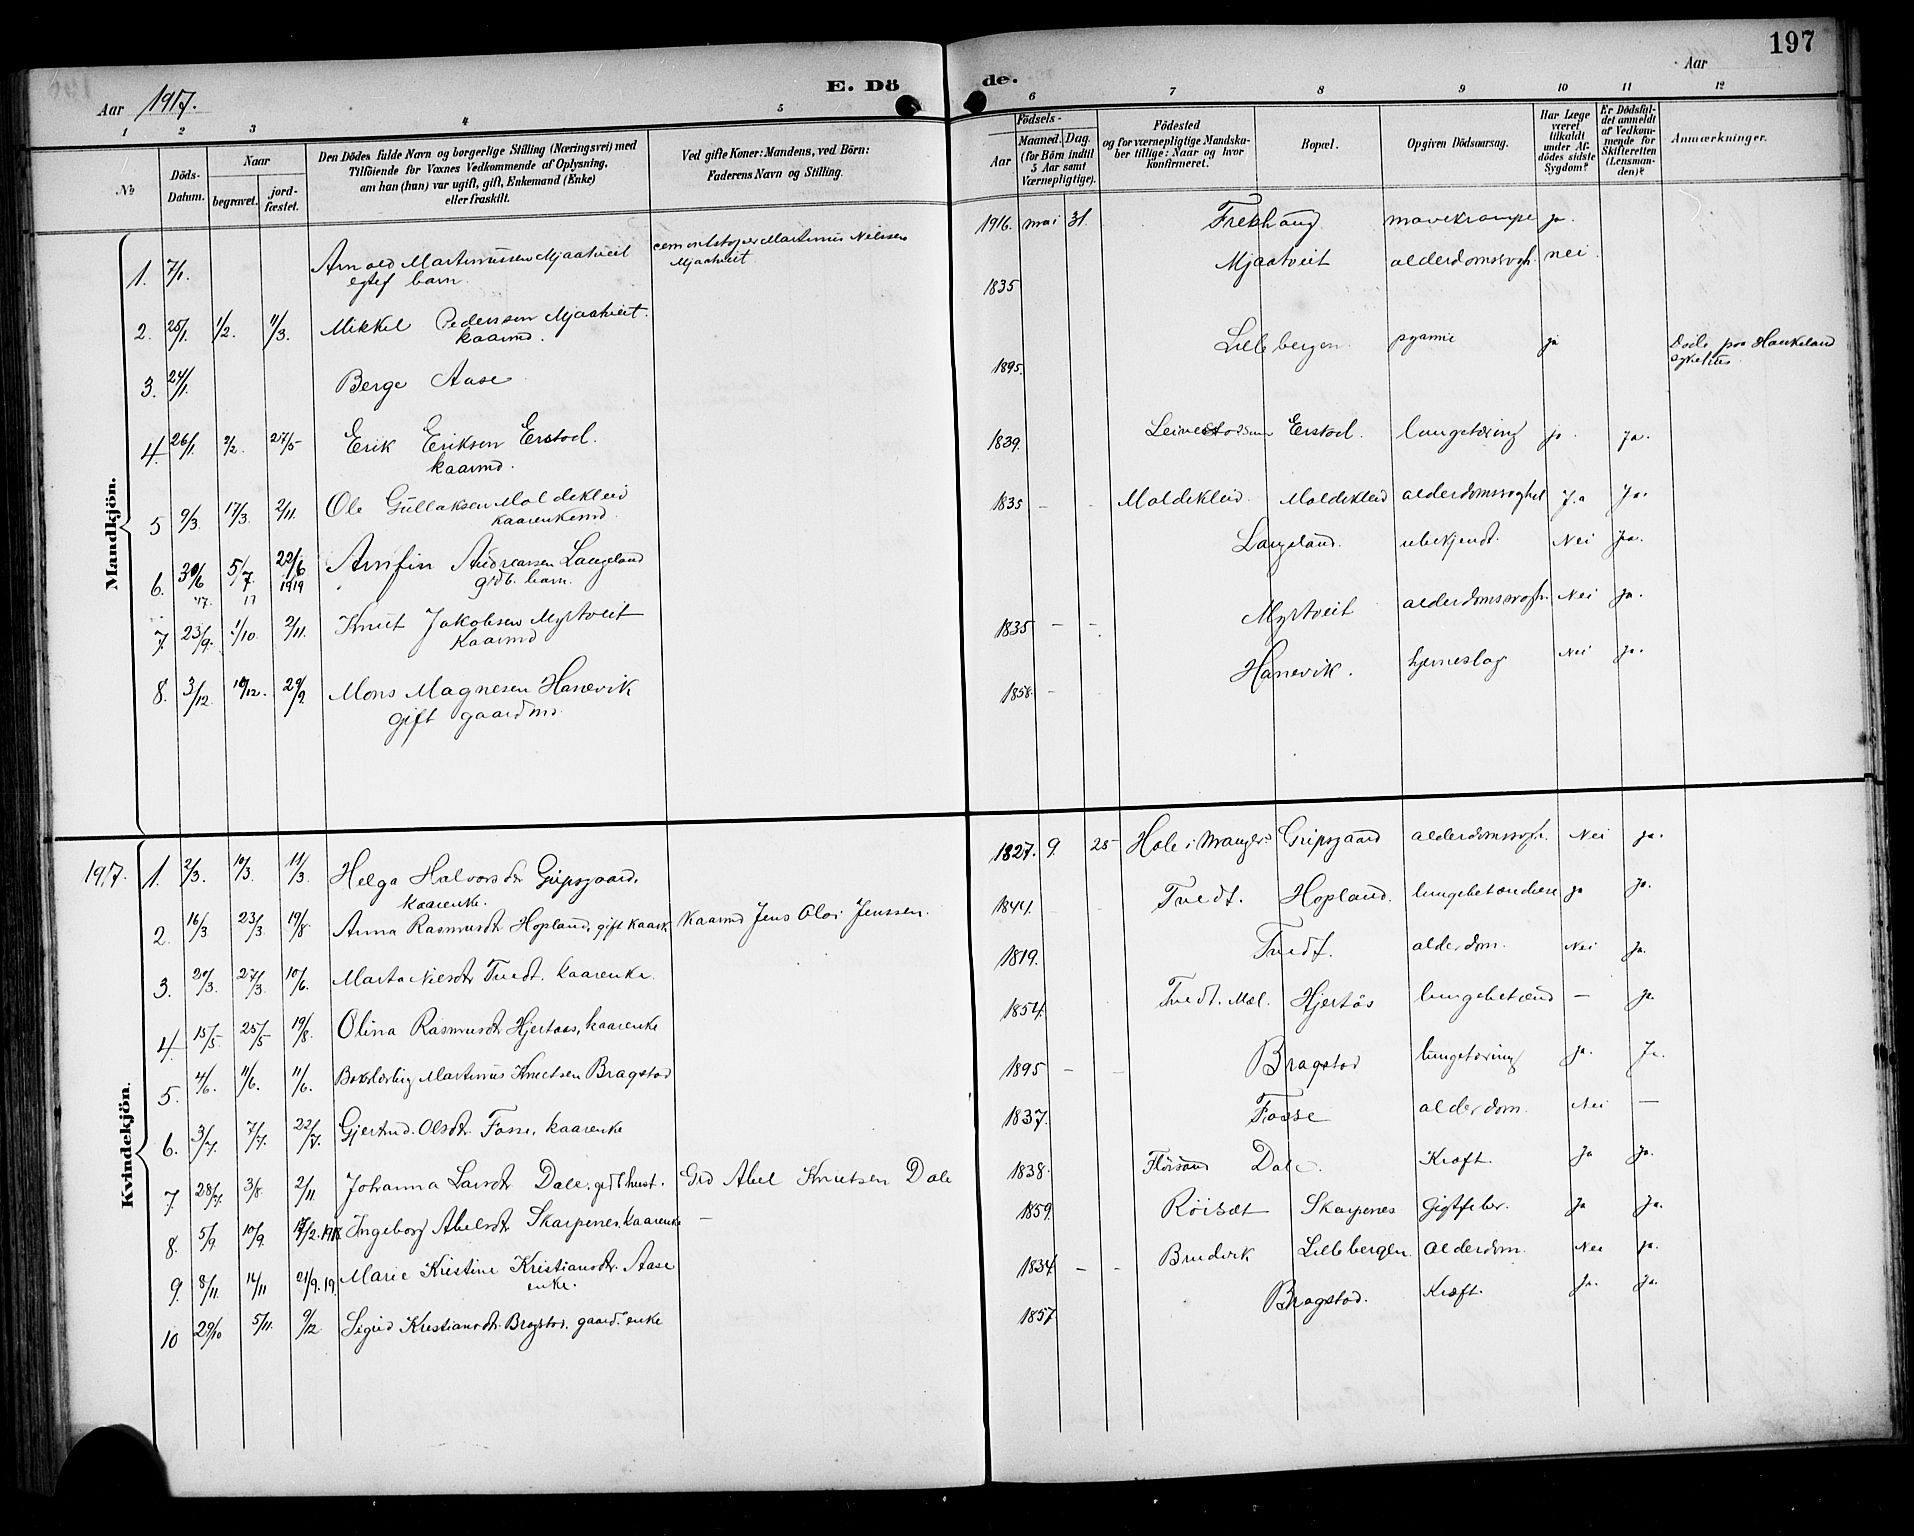 197
E. Döde.
Aar 1917.
Aar
1 2 3 4 5 6 7 8 9 10 11 12
No
Döds-Datum.
Naar
begravet.
jordfæstet.
Den Dödes fulde Navn og borgerlige Stilling (Næringsvei) med
Tilföiende for Voxnes Vedkommende af Oplysning,
om han (hun) var ugift, gift, Enkemand (Enke)
eller fraskilt.
Ved gifte Koner: Mandens, ved Börn:
Faderens Navn og Stilling.
Födsels-
Aar
Maaned. Dag.
(for Börn indtil
5 Aar samt
Værnepligtige).
Födested
og for værnepligtige Mandska-
ber tillige: Naar og hvor
konfirmeret.
Bopæl.
Opgiven Dödsaarsag.
Har Læge
været
tilkaldt
under Af-
dödes sidste
Sygdom?
Er Dödsfal-
det anmeldt
af Vedkom-
mende for
Skifteretten
(Lensman-
den)?
Anmærkninger.
Mandkjön.
1. 7/1. Arnold Martinussen Mjaatveit cementstøper Martinus Nilssen 1916. mai 31. Frekhaug mavekrampe ja.
egtef barn. Mjaatveit
2. 25/1. 1/2. 11/3. Mikkel Pederssen Mjaatveit. 1835 Mjaatveit alderdomssvagh. nei.
kaarmd.
3. 24/1. Berge Aase 1895. Lille bergen. pyæmie ja Døde paa Haukeland
sykehus
4. 26/1. 9/2. 27/5 Erik Eriksen Erstad. 1839. Erstad. lungetæring ja. ja.
kaarmd.
5 9/3. 17/3. 2/11. Ole Gullaksen Moldekleiv 1835 - - Moldekleiv. Moldekleiv alderdomssvaghet Ja Ja.
kaarenkemd.
6. 30/6 17. 5/7. 17 22/6 1919 Arnfin Andreassen Langeland Langeland. ubekjendt. Nei Ja.
grdb. barn.
7. 23/9. 1/10. 2/11. Knut Jakobsen Myrtveit 1835 - - Myrtveit alderdomssvagh. Nei ja.
Kaarmd
8. 3/12. 10/12. 29/9. Mons Magnesen Hanevik 1858. - Hanevik. hjerneslag Nei ja.
gift gaardmd.
Kvindekjön.
1917. 1. 2/3. 10/3. 11/3. Helga Halvorsdtr Gripsgaard, 1827. 9. 25 Hole i Manger Gripsgaard alderdomssvagh. Nei ja.
kaarenke.
2. 16/3. 23/3. 19/8. Anna Rasmusdtr Hopland, gift kaark. Kaarmd Jens Olai Jenssen. 1844. - - Tvedt. Hopland. lungebetændelse ja ja.
3. 20/3. 27/3. 10/6. Marta Nilsdtr Tvedt. kaarenke. 1819. Tvedt. alderdom. Nei ja.
4. 15/5. 25/5 19/8. Olina Rasmusdtr Hjertaas, kaarenke 1854. Tvedt. Mæl. Hjertås lungebetænd - ja.
5. 4/6. 11/6. 11/6. Martinus Knutsen Bragstad 1895 - - Bragstad lungetæring ja. Ja.
6. 3/7. 7/7. 22/7. Gjertrud. Olsdtr. Fosse, kaarenke 1837. Fosse alderdom. Nei -
7 28/7. 3/8. 2/11 Johanna Larsdtr Dale, grdb hust. Grd Abel Knutsen Dale 1838. Flörsand Dale. Kræft. Ja ja.
8. 5/9. 10/9. 17/2.1918 Ingeborg Abelsdtr Skarpenes, kaarenke - 1859. Röisæt Skarpenes Gigtfeber. Ja Ja.
9. 8/11. 14/11 21/9.19. Marie Kristine Kristiansdtr. Aase 1834. - - Bruvik Lillebergen. Alderdom. Nei ja.
enke.
10 29/10 5/11. 9/12 Sigrid Kristiansdtr. Bragstad. gaard. enke 1857 Bragstad. Kræft. Ja. Ja.